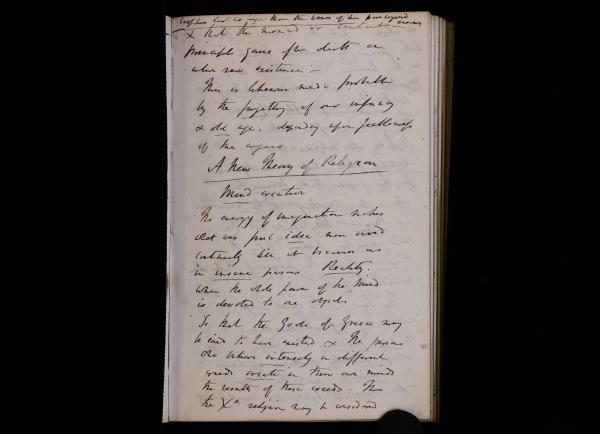 than the
& that the
principle gains after death a
whole new existence –
This is likewise made probable
by the forgetting of our infancy
& old age, depending upon feebleness
of the organs.
A New Theory of Religion
Mind creation
The energy of imagination makes
what was first idea more vivid
continually till it becomes as
in insane persons Reality.
When the whole power of the Mind
is devoted to one object
So that the Gods of Greece may
be said to have existed & the persons
who believe intensely in different
creeds create in their own minds
the results of those creeds. Thus
the Xn religion may be considered